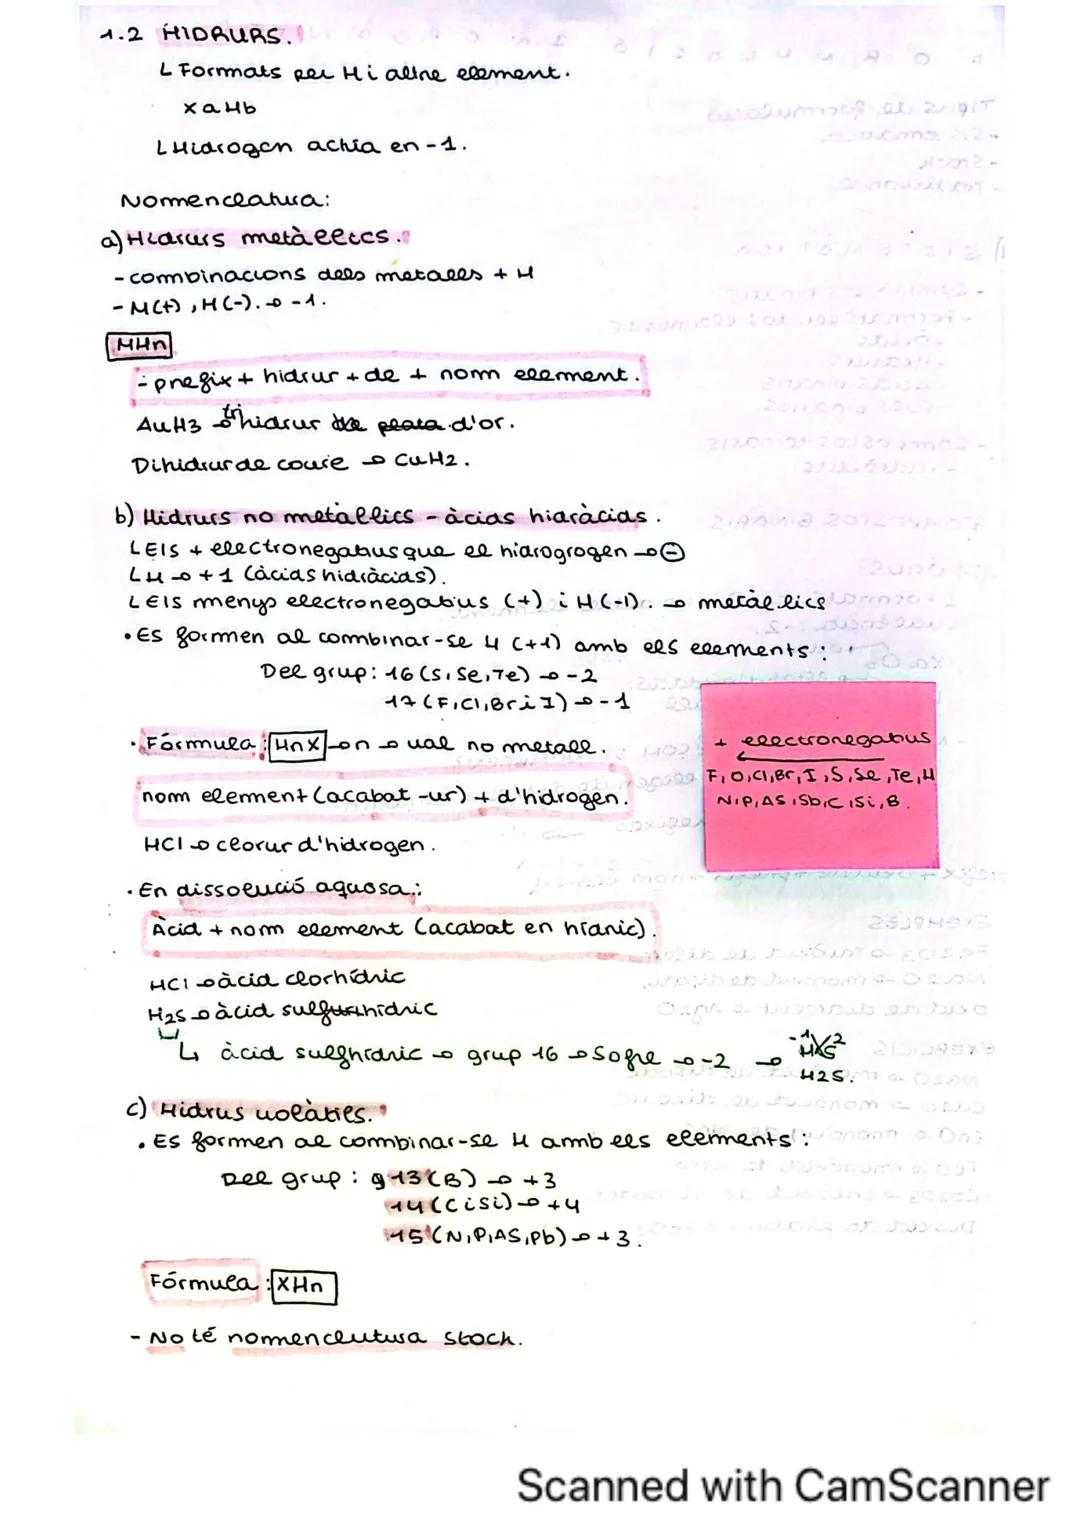 1.2 HIDRURS.
Formats per H i altre element.
XaHb
Hidrogen actúa en -1.
Nomenclatura:
a) Hidrurs metàl·lics.
- combinacions dels metalls + H
- M(+), H(-). → -1.
MHn
- prefix + hidrur + de + nom element.
AuH3 → trihidrur de plata d'or.
Dihidrur de coure → CuH2.
b) Hidrurs no metàl·lics - àcids hidràcids.
Els + electronegatius que el hidrogrogen → -
H → +1 (àcids hidràcids).
Els menys electronegatius (+) i H (-1). → metàl·lics
• Es formen al combinar-se H (+1) amb els elements:
Del grup: 16 (S, Se, Te) → -2
17 (F, Cl, Br i I) → -1
+ electronegatius
F, O, Cl, Br, I, S, Se, Te, H
N, P, As, Sb, C, Si, B.
· Fórmula: HnX → n → val no metall.
nom element (acabat -ur) + d'hidrogen.
HCl → clorur d'hidrogen.
· En dissolució aquosa:
Àcid + nom element (acabat en hídric).
HCl → àcid clorhídric
H2S → àcid sulfurhídric
àcid sulfhídric → grup 16 → Sofre → -2 →
H2S.
c) Hidrus volàtils.
• Es formen al combinar-se H amb els elements:
Del grup: g 13 (B) → +3
14 (C i Si) → +4
15 (N, P, As, Pb) → +3.
Fórmula: XHn
- No té nomenclutura stock.
Scanned with CamScanner